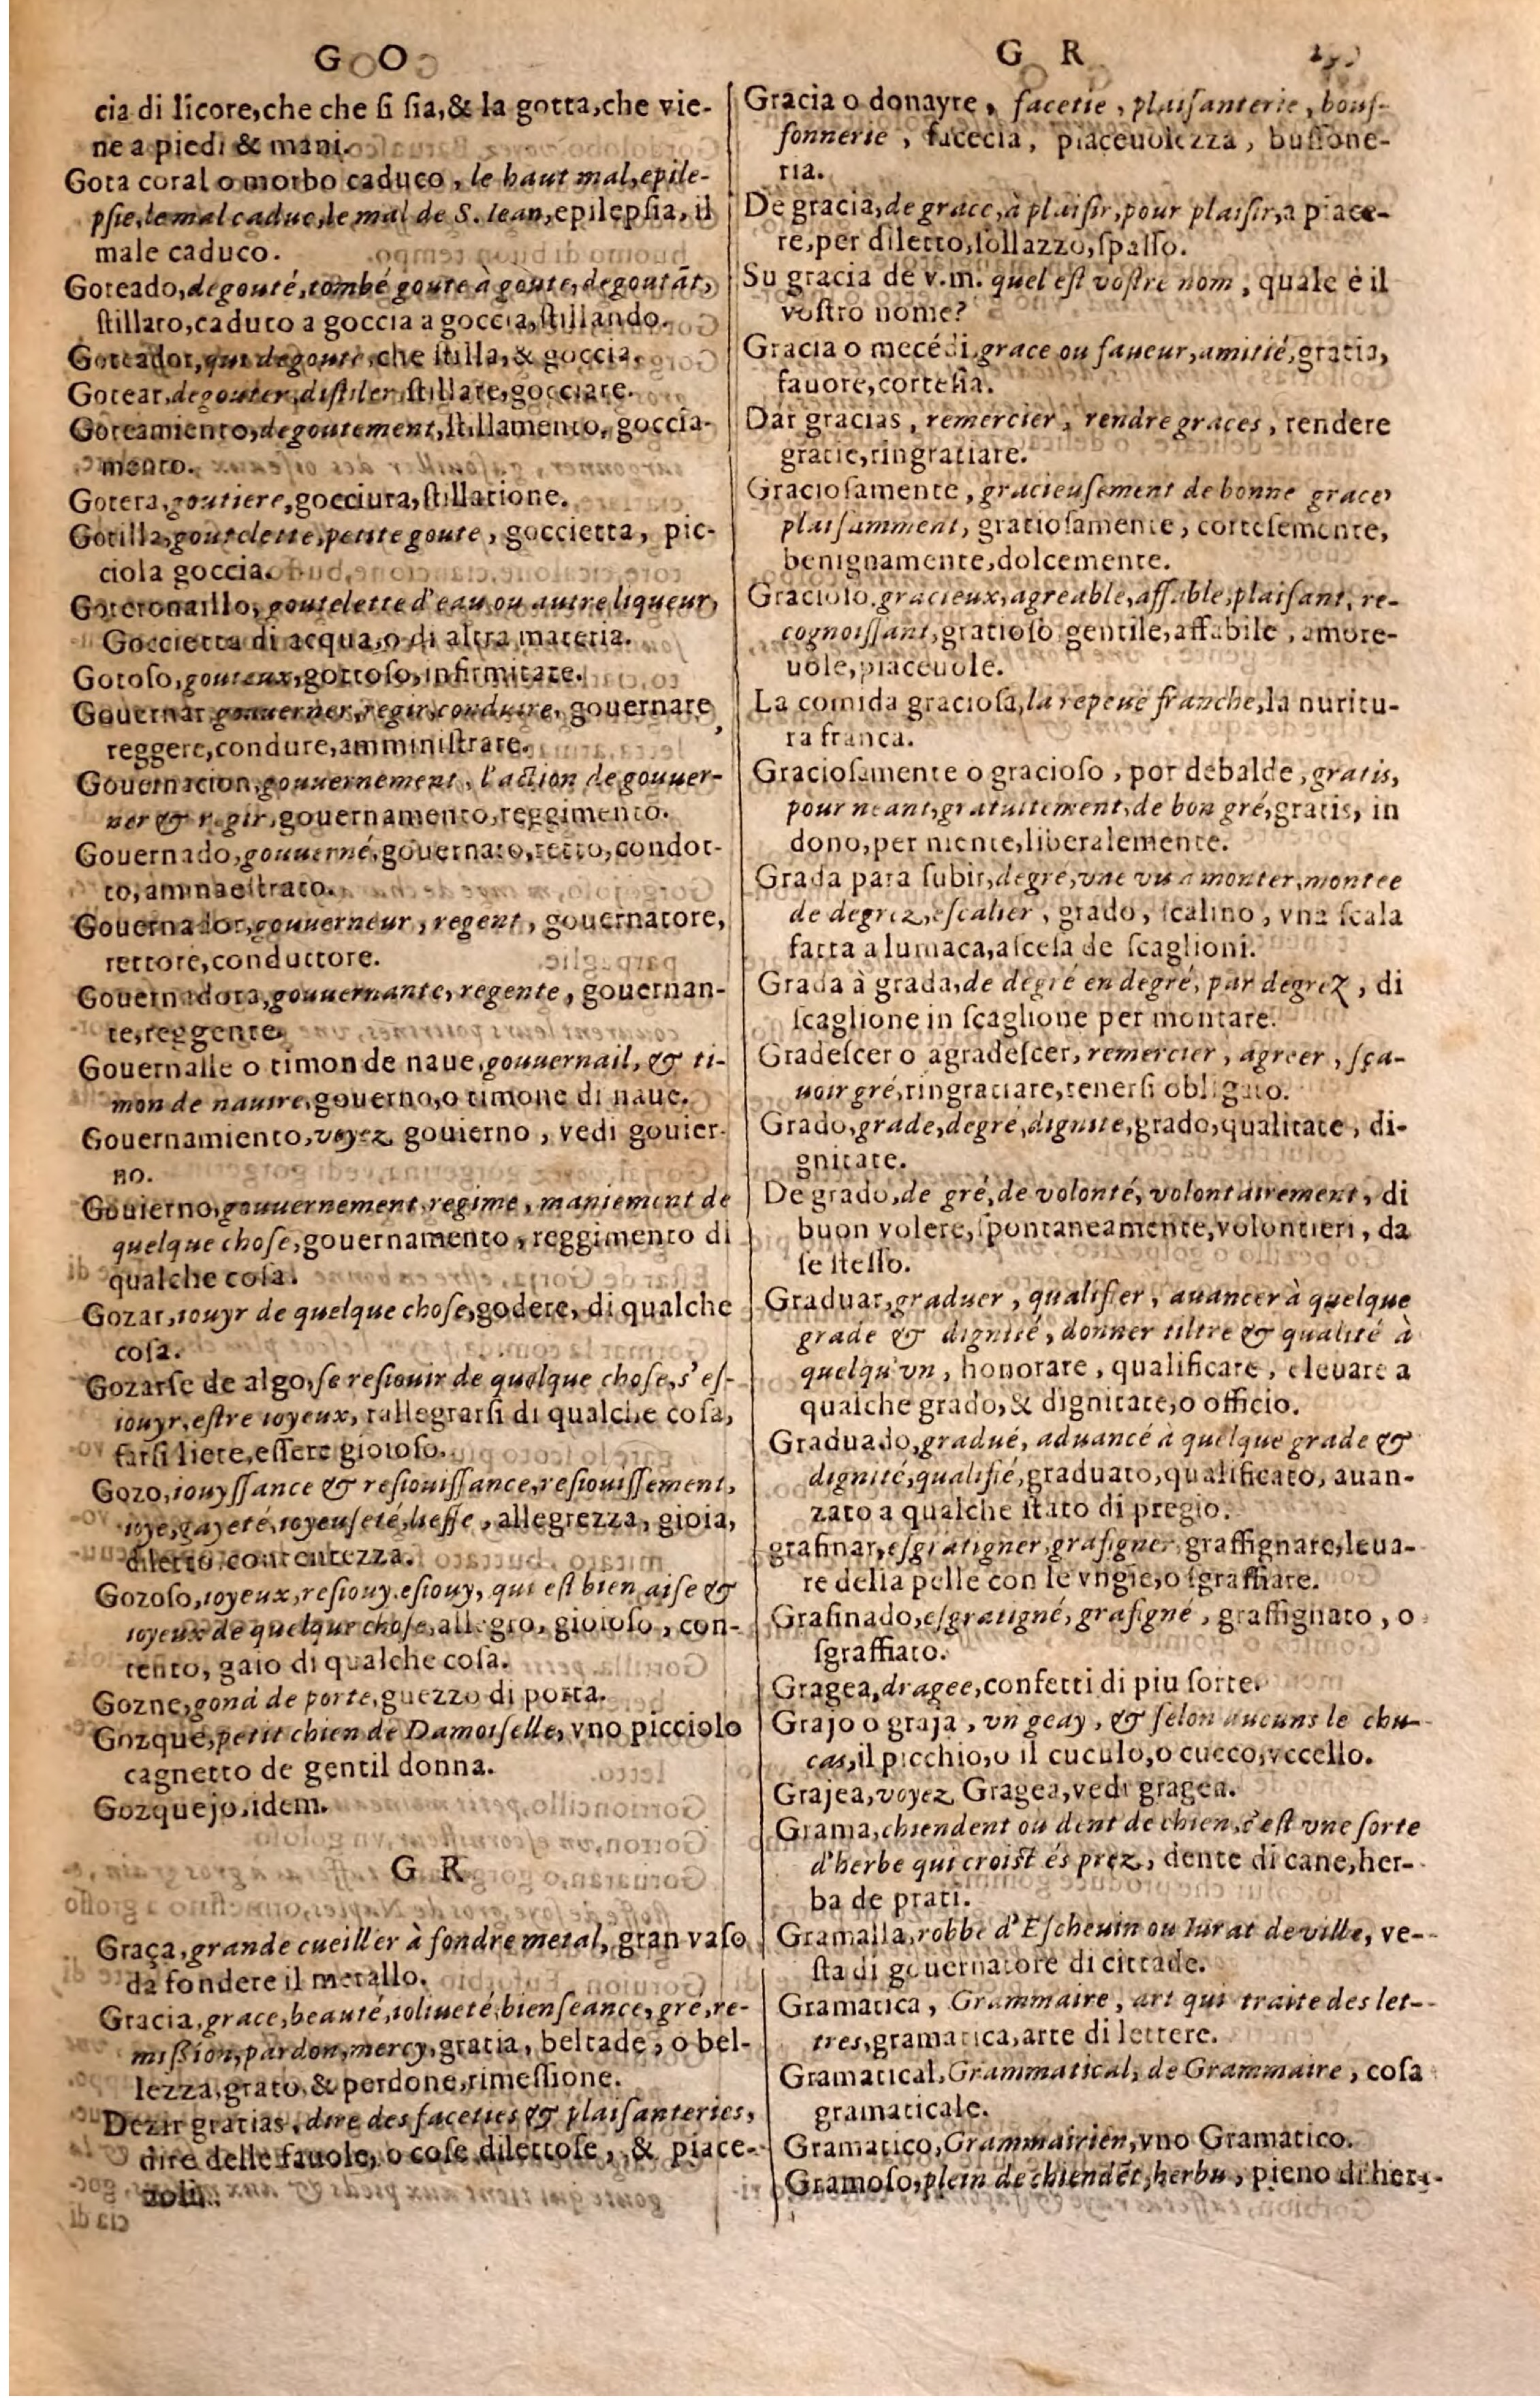 G O
cia di licore,che che ſi ſia,& la gotta,che vie-
ne a piedi & mani.
Gota coral o morbo caduco, le haut mal,epile-
pſie,le mal caduc,le mal de S. Iean,epilepſia, il
male caduco.
Goteado,degouté,tombé goute à goute,degoutãt,
ſtillato,caduto a goccia a goccia,ſtillando.
Goteador,qui degoute,che ſtilla,& goccia.
Gotear,degouter,diſtiler,ſtillare,gocciare.
Goteamiento,degoutement,ſtillamento, goccia-
mento.
Gotera,goutiere,gocciura,ſtillatione.
Gotilla,goutelette,petite goute, goccietta, pic-
ciola goccia.
Goteronaillo, goutelette d'eau,ou autre liqueur,
Goccietta di acqua,o di altra materia.
Gotoſo,gouteux,gottoſo,infirmitate.
Gouernar gouuerner,regir,conduire, gouernare,
reggere,condure,amminiſtrare.
Gouernacion,gouuernement, l'action de gouuer-
ner & regir,gouernamento,reggimento.
Gouernado,gouuerné,gouernato,retto,condot-
to,aminaeſtrato.
Gouernador,gouuerneur, regent, gouernatore,
rettore,conduttore.
Gouernadora,gouuernante, regente, gouernan-
te,reggente.
Gouernalle o timon de naue,gouuernail, & ti-
mon de nauire,gouerno,o timone di naue.
Gouernamiento,voyez gouierno, vedi gouier-
no.
Gouierno,gouuernement,regime, maniement de
quelque choſe,gouernamento, reggimento di
qualche coſa.
Gozar,iouyr de quelque choſe,godere, di qualche
coſa.
Gozarſe de algo,ſe reſiouir de quelque choſe,s'eſ-
iouyr,eſtre ioyeux, rallegrarſi di qualche coſa,
farſi liete,eſſere gioioſo.
Gozo,iouyſſance & reſiouiſſance,reſiouiſſement,
ioye,gayeté,ioyeuſeté,lieſſe, allegrezza, gioia,
diletto,contentezza.
Gozoſo,ioyeux,reſiouy.eſiouy, qui est bien aiſe &
ioyeux de quelque choſe,allegro, gioioſo, con-
tento, gaio di qualche coſa.
Gozne,gond de porte,guezzo di porta.
Gozque,petit chien de Damoiſelle, vno picciolo
cagnetto de gentil donna.
Gozquejo,idem.
G R
Graça,grande cueiller à fondre metal, gran vaſo
da fondere il metallo.
Gracia,grace,beauté,ioliueté,bienſeance,gré,re-
miſſion,pardon,mercy,gratia, beltade, o bel-
lezza,grato,& perdone,rimeſſione.
Dezir gratias, dire des faceties & plaiſanteries,
dire delle fauole, o coſe dilettoſe, & piace-
uoli.
G R
Gracia o donayre, facetie, plaiſanterie, bouf-
fonnerie, facecia, piaceuolezza, buffone-
ria.
De gracia,de grace,à plaiſir,pour plaiſir,a piace-
re,per diletto,ſollazzo,ſpaſſo.
Su gracia de v.m. quel eſt voſtre nom, quale è il
voſtro nome?
Gracia o mecédi,grace ou faueur,amitié,gratia,
fauore,corteſia.
Dar gracias, remercier, rendre graces, rendere
gratie,ringratiare.
Gracioſamente, gracieuſement de bonne grace,
plaiſamment, gratioſamente, corteſemente,
benignamente,dolcemente.
Gracioſo,gracieux,agreable,affable,plaiſant, re-
cognoiſſant,gratioſo gentile,affabile, amore-
uole,piaceuole.
La comida gracioſa,la repeuë franche,la nuritu-
ra franca.
Gracioſamente o gracioſo, por debalde, gratis,
pour neant,gratuitement,de bon gré,gratis, in
dono,per niente,liberalemente.
Grada para ſubir,degré,vne vis a monter,montee
de degrez,eſcalier, grado, ſcalino, vna ſcala
fatta a lumaca,aſceſa de ſcaglioni.
Grada à grada,de degré en degré, par degrez, di
ſcaglione in ſcaglione per montare.
Gradeſcer o agradeſcer, remercier, agreer, ſça-
uoir gré,ringratiare,tenerſi obligato.
Grado,grade,degré,dignité,grado,qualitate, di-
gnitate.
De grado,de gré,de volonté, volontairement, di
buon volere,ſpontaneamente,volontieri, da
ſe ſteſſo.
Graduar,graduer, qualifier, auancer à quelque
grade & dignité, donner tiltre & qualité à
quelqu'vn, honorare, qualificare, eleuare a
qualche grado,& dignitate,o officio.
Graduado,gradué, aduancé à quelque grade &
dignité,qualifié,graduato,qualificato, auan-
zato a qualche ſtato di pregio.
graſinar,eſgratigner,graſigner,graffignare,leua-
re della pelle con le vngie,o ſgraffiare.
Graſinado,eſgratigné,graſigné, graffignato, o
ſgraffiato.
Gragea,dragee,confetti di piu ſorte.
Grajo o graja, vn geay, & ſelon aucuns le chu-
cas,il picchio,o il cuculo,o cucco,vccello.
Grajea,voyez Gragea,vedi gragea.
Grama,chiendent ou dent de chien,c'eſt vne ſorte
d'herbe qui croiſt és prez, dente di cane,her-
ba de prati.
Gramalla,robbe d'Eſcheuin ou Iurat de ville, ve-
ſta di gouernatore di cittade.
Gramatica, Grammaire, art qui traite des let-
tres,gramatica,arte di lettere.
Gramatical,Grammatical, de Grammaire, coſa
gramaticale.
Gramatico,Grammairien,vno Gramatico.
Gramoſo,plein de chiendẽt,herbu, pieno di her-